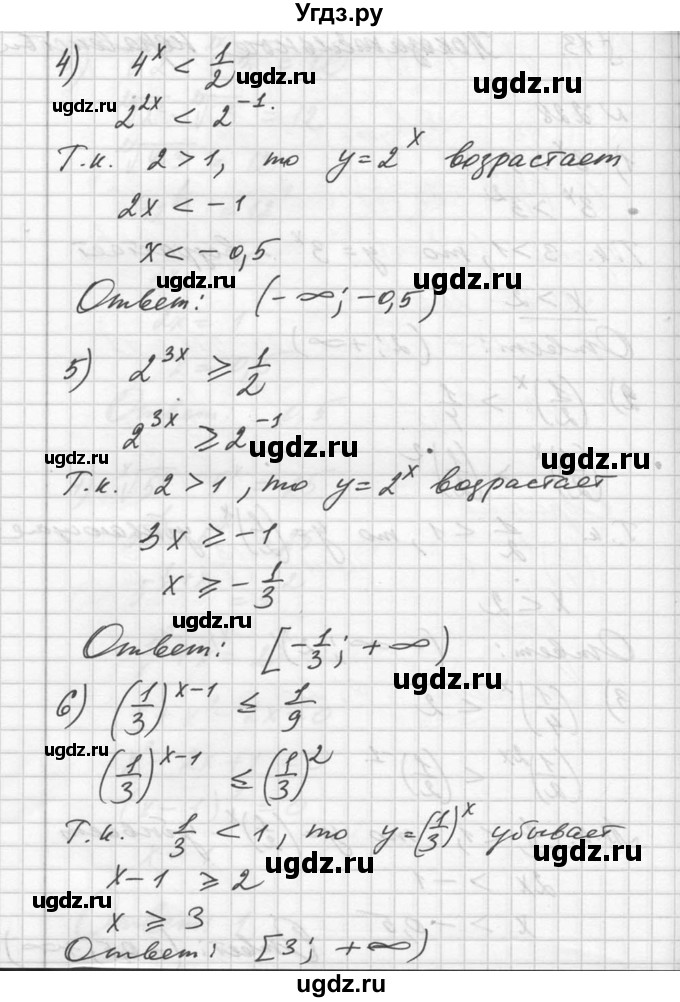 Угдз.ру
4) 4^x < 1/2
ugdz.ru ugdz.ru
2^{2x} < 2^{-1}.
Т.к. 2 > 1, то y = 2^x возрастает
2x < -1
x < -0,5
ugdz.ru ugdz.ru
Ответ: (-∞; -0,5)
5) 2^{3x} ⩾ 1/2
ugdz.ru
2^{3x} ⩾ 2^{-1}
ugdz.ru ugdz.ru ugdz.ru
Т.к. 2 > 1, то y = 2^x возрастает
3x ⩾ -1
x ⩾ -1/3
ugdz.ru
Ответ: [-1/3; +∞)
ugdz.ru
6) (1/3)^{x-1} ≤ 1/9
ugdz.ru
(1/3)^{x-1} ≤ (1/3)^2
ugdz.ru
Т.к. 1/3 < 1, то y = (1/3)^x убывает
ugdz.ru ugdz.ru
x-1 ⩾ 2
ugdz.ru
x ⩾ 3
Ответ: [3; +∞)
ugdz.ru ugdz.ru
ugdz.ru